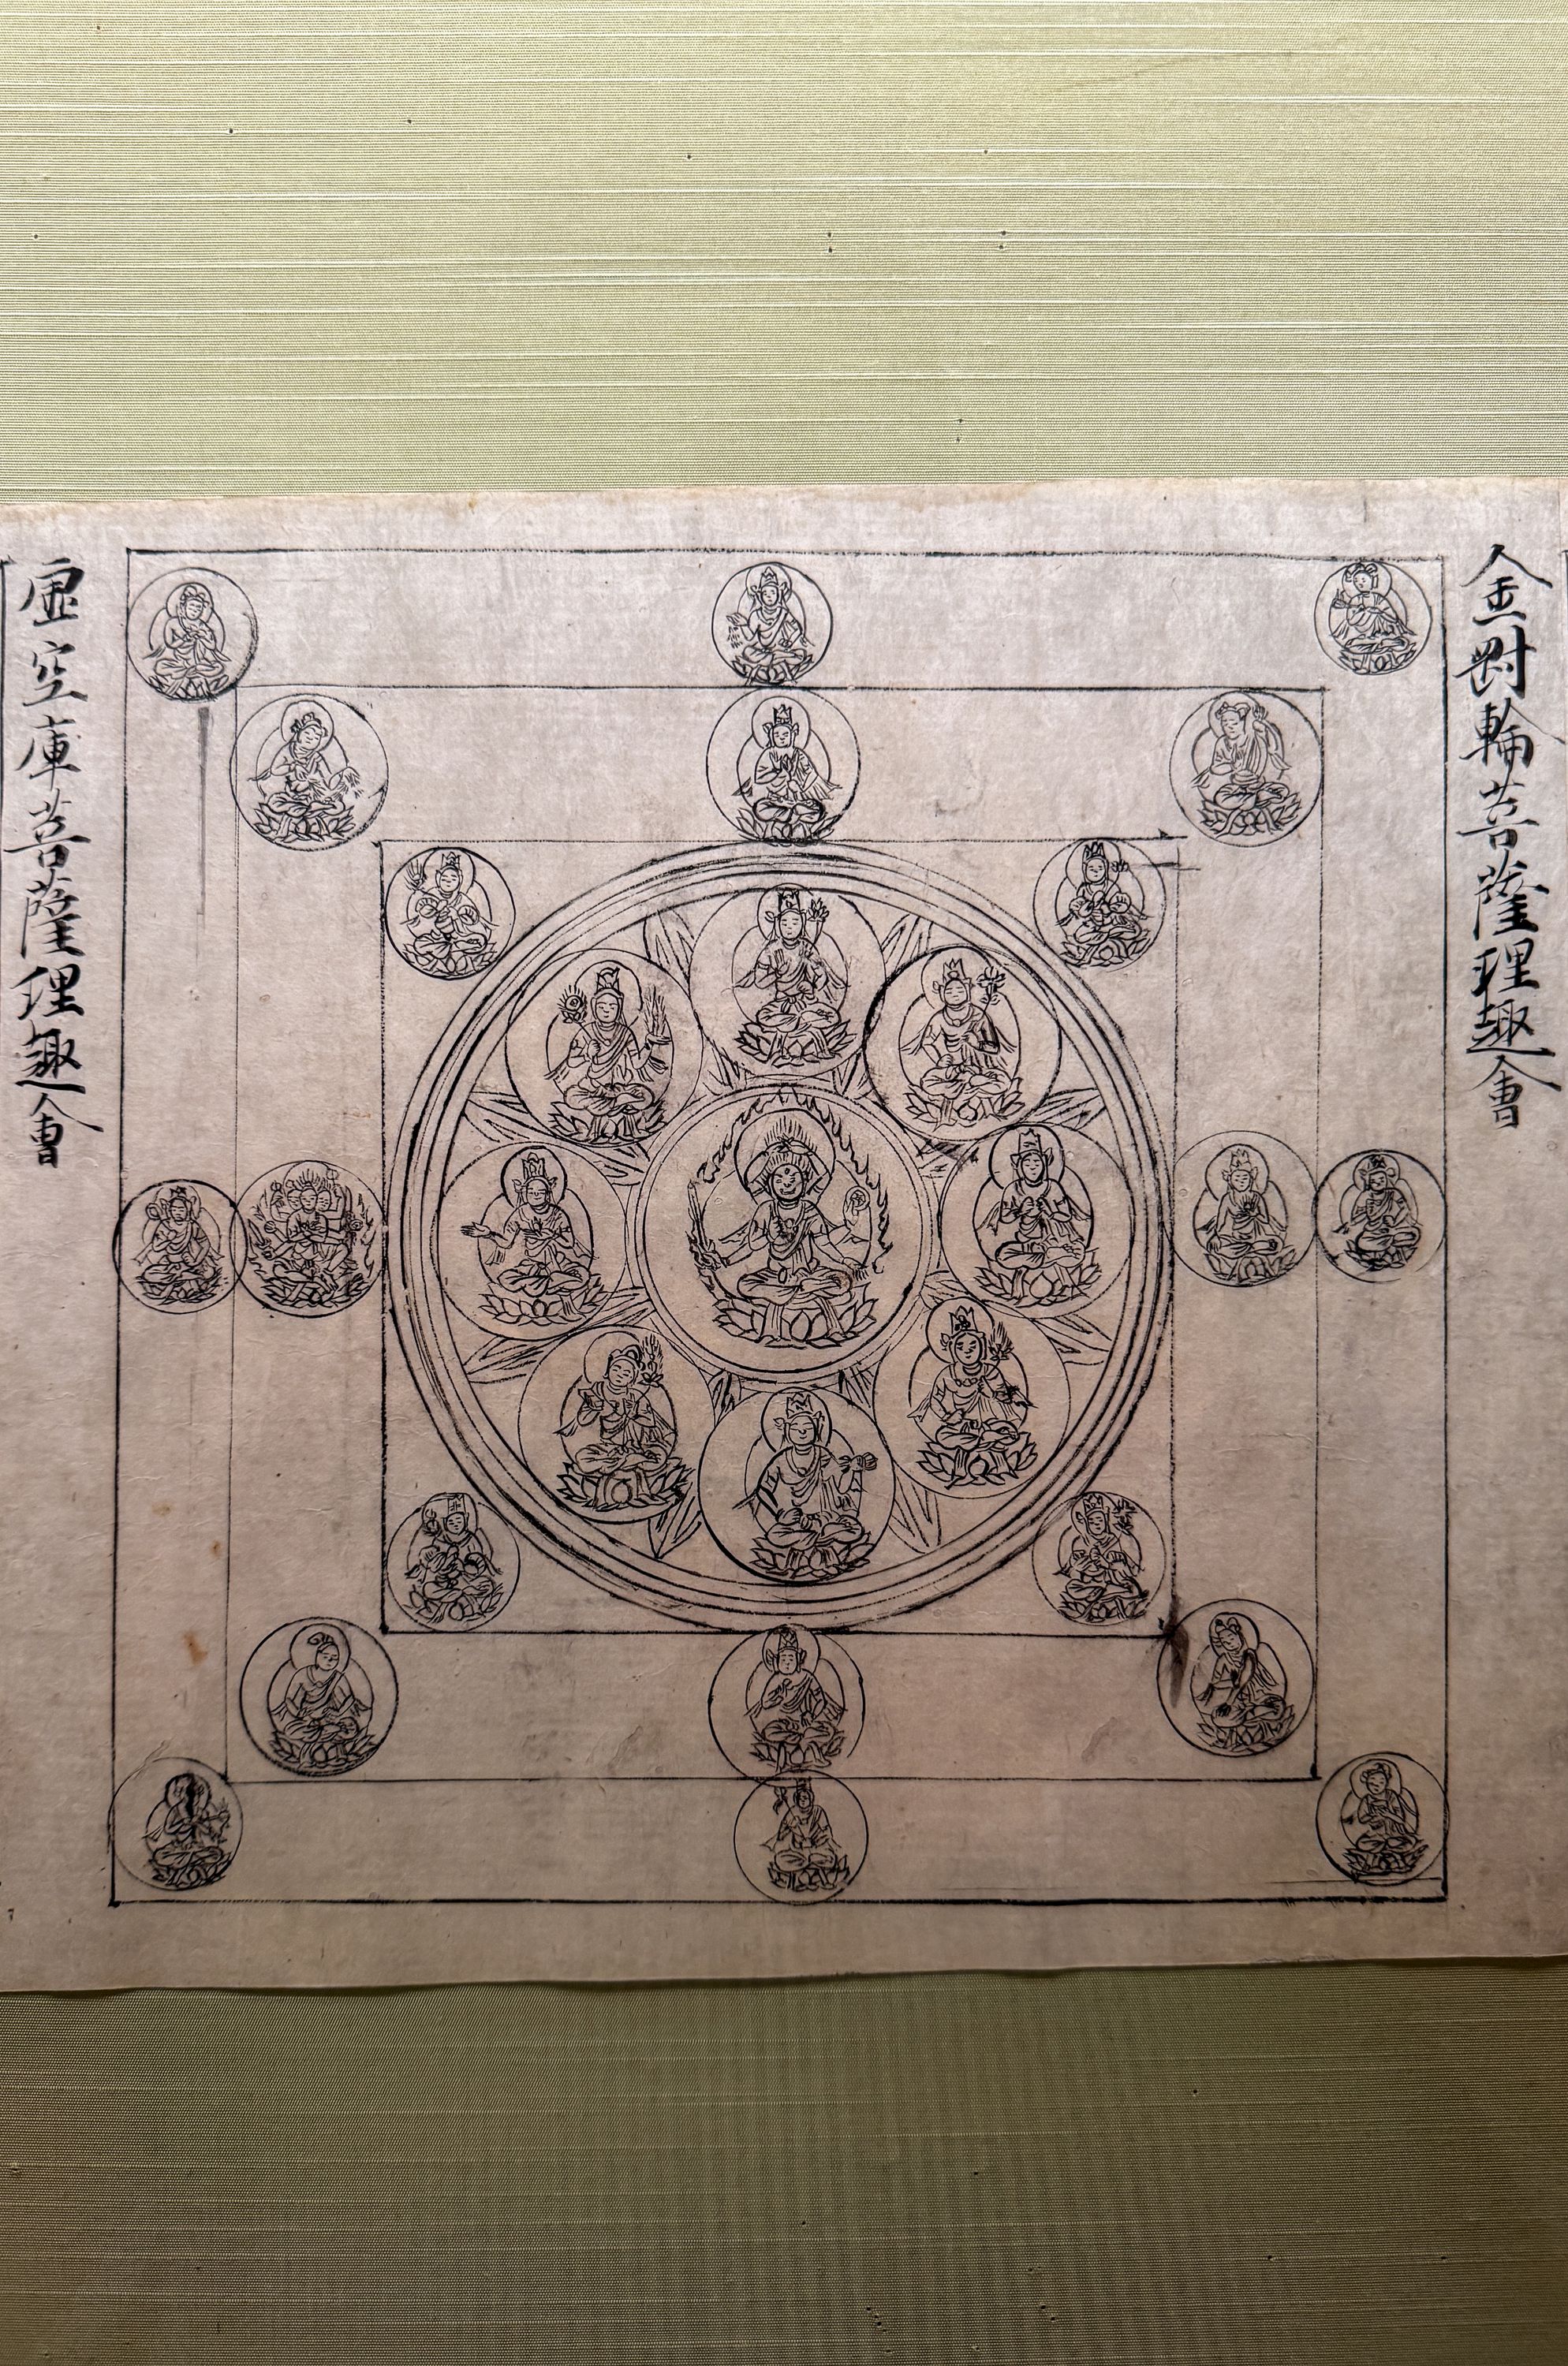 金剛輪菩薩理趣會
虛空庫菩薩理趣會